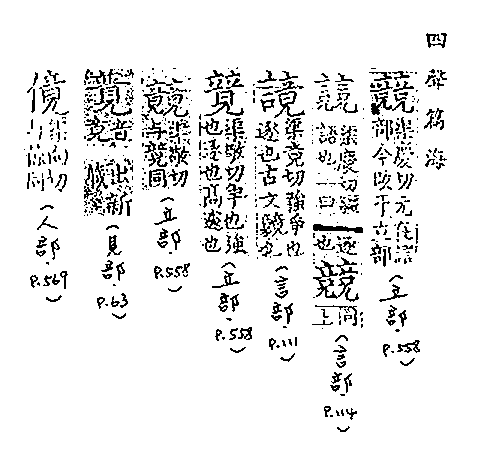 四聲篇海
競 渠慶切元在誩部今改于立部(立部.P.558)
誩 渠慶切競語也一曰逐也 競 同上(言部.P.114)
渠竞切強爭也逐也古文競(言部.P.111)
渠敬切爭也強也逐也高遽也(立部.P.558)
渠敬切与競同(立部.P.558)
音竞出新藏(見部.P.63)
傹 渠向切与倞同(人部.P.569)